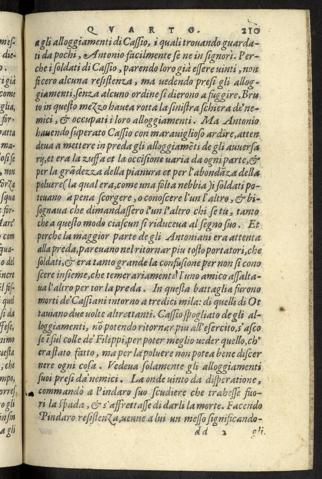 QVARTO. 210
agli alloggiamenti di Cassio, i quali trouando guarda-
ti da pochi, Antonio facilmente se ne in signori. Per-
che i soldati di Cassio, parendo loro già essere uinti, non
fecero alcuna resistenza, ma uedendo presi gli allog-
giamenti, senza alcuno ordine si dierono a fuggire. Bru
to in questo mezzo haueua rotta la sinistra schiera de'ne-
mici, & occupati i loro alloggiamenti. Ma Antonio
hauendo superato Cassio con marauiglioso ardire, atten
deua a mettere in preda gli alloggiamēti de gli auuersa
ry, et era la zuffa et la occisione uaria da ogni parte, &
per la grādezza della pianura et per l'abondāza della
poluere (la qual era, come una folta nebbia) i soldati po-
teuano a pena scorgere, o conoscere l'un l'altro, & bi-
sognaua che dimandassero l'un l'altro chi se tu, tanto
che a questo modo ciascun si riduceua al segno suo. Et
perche la maggior parte de gli Antoniani era attenta
alla preda, pareuano nel ritornar piu tosto portatori, che
soldati, & era tanto grande la confusione per non si cono
scere insieme, che temerariamente l'uno amico assalta-
ua l'altro per tor la preda. In questa battaglia furono
morti de'Cassiani intorno a tredici mila: di quelli di Ot
tauiano due uolte altrettanti. Cassio spogliato de gli al-
loggiamenti, nō potendo ritornar piu all'esercito, s'asco
se i sul colle de' Filippi, per poter meglio ueder quello, ch'
era stato fatto, ma per la poluere non potea bene discer
nere ogni cosa. Vedeua solamente gli alloggiamenti
suoi presi da'nemici. La onde uinto da disperatione,
commandò a Pindaro suo scudiere che trahesse fuo-
ri la spada, & s'affrettasse di darli la morte. Facendo
Pindaro resistenza, uenne a lui un messo significando-
dd 2 gli